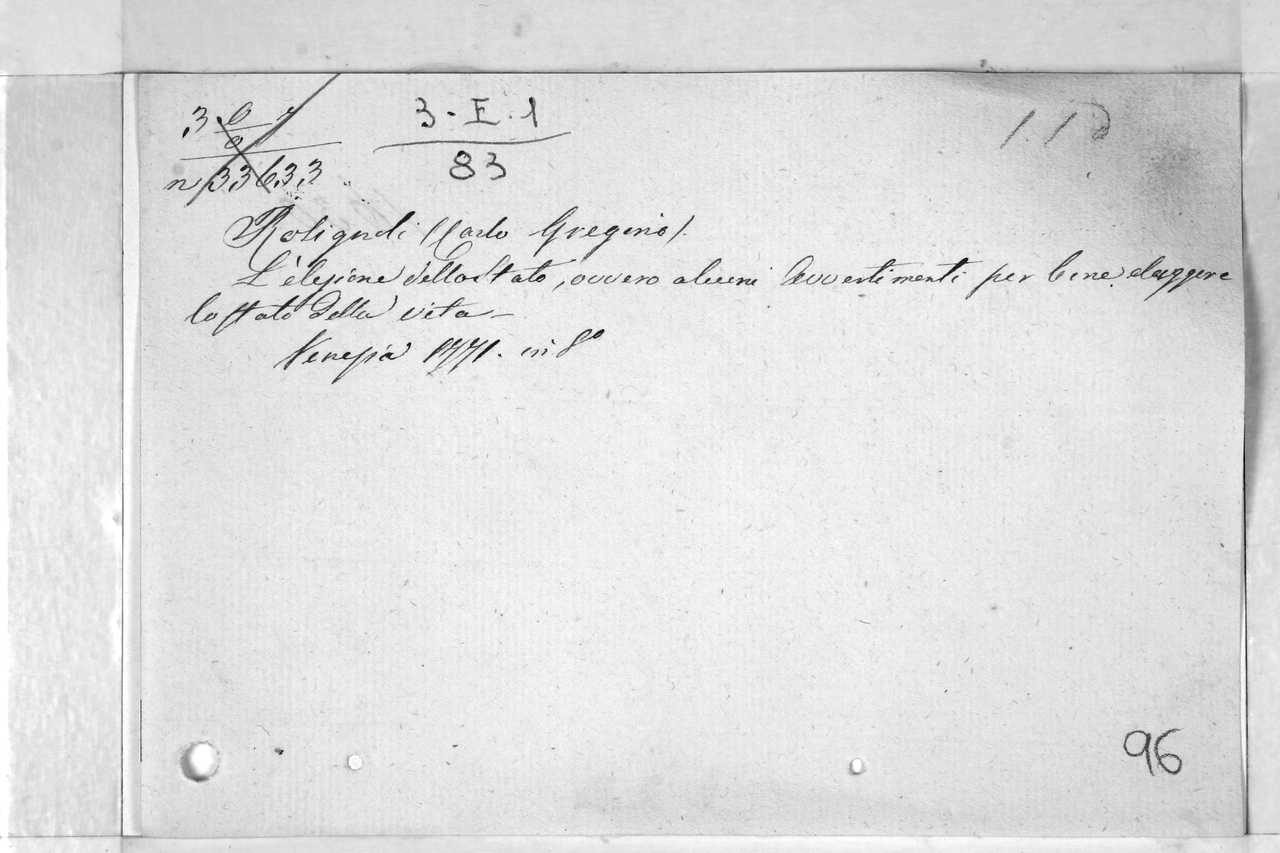 3-E.1
83
n 33633
Rosignoli (Carlo Gregorio).
L'elezione dello stato, ovvero alcuni avvertimenti per bene eleggere
lo stato della vita—
Venezia 1771. in 8º
96